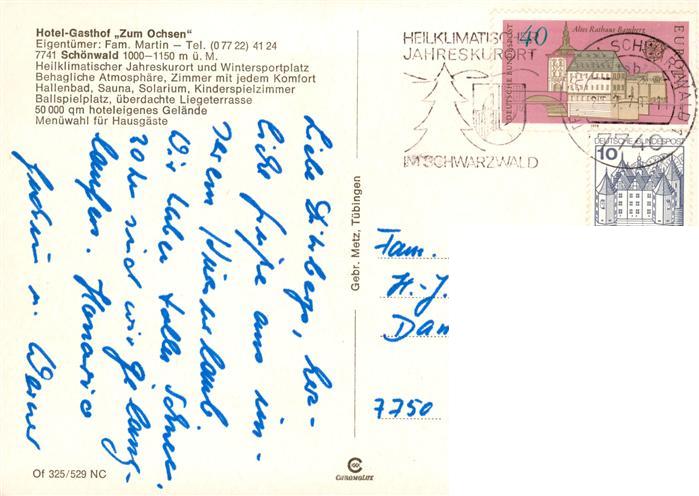 Hotel-Gasthof „Zum Ochsen"
Eigentümer: Fam. Martin – Tel. (0 77 22) 41 24
7741 Schönwald 1000–1150 m ü. M.
Heilklimatischer Jahreskurort und Wintersportplatz
Behagliche Atmosphäre, Zimmer mit jedem Komfort
Hallenbad, Sauna, Solarium, Kinderspielzimmer
Ballspielplatz, überdachte Liegeterrasse
50 000 qm hoteleigenes Gelände
Menüwahl für Hausgäste
Liebe
herz-
liche Grüße aus un-
serem Winterurlaub
Wir haben tollen Schnee.
30 km sind wir ge lang-
laufen.
u. Werner
Of 325/529 NC
Gebr. Metz, Tübingen
CHROMOLUX
HEILKLIMATISCHER
JAHRESKURORT
IM SCHWARZWALD
40
Altes Rathaus Bamberg
EUROPA
DEUTSCHE BUNDESPOST
7740
10
DEUTSCHE BUNDESPOST
Fam.
H.-J.
Dan
7750